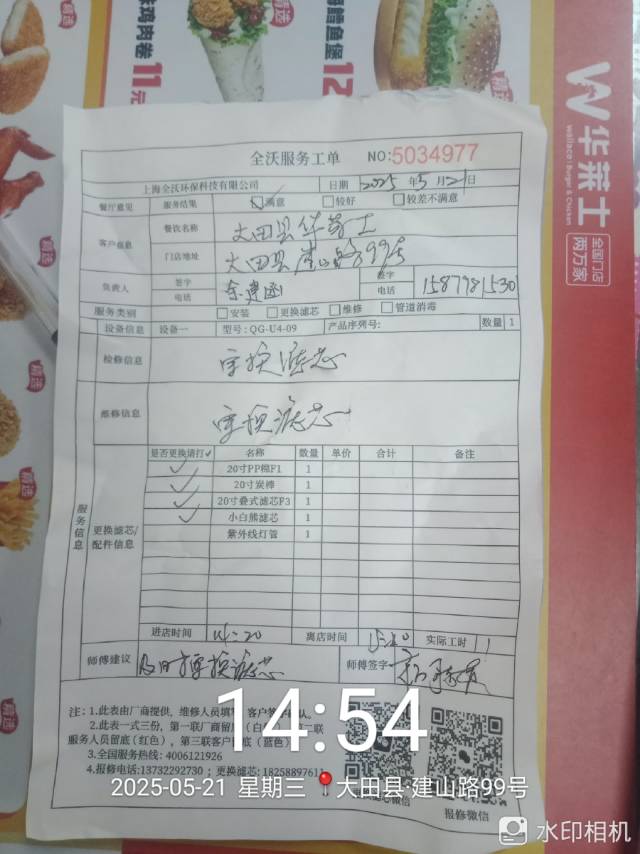 鸡肉卷 11元
鳕鱼堡 12
精选
华莱士
wallace | Burger & Chicken
全国门店
两万家
全沃服务工单 NO:5034977
上海全沃环保科技有限公司 日期 2025年5月21日
餐厅意见 服务结果 满意 较好 较差不满意
客户信息 餐饮名称 大田县华莱士
门店地址 大田县建山路99号
负责人 签字 电话 签字 电话 15879781530
服务类别 安装 更换滤芯 维修 管道消毒
设备信息 设备一 型号:QG-U4-09 产品序列号: 数量 1
检修信息 更换滤芯
维修信息 更换滤芯
服务信息
更换滤芯/配件信息
是否更换请打✓ 名称 数量 单价 合计 备注
✓ 20寸PP棉F1 1
✓ 20寸炭棒 1
✓ 20寸叠式滤芯F3 1
✓ 小白熊滤芯 1
紫外线灯管 1
进店时间 14:20 离店时间 实际工时
师傅建议 及时更换滤芯 师傅签字
注:1.此表由厂商提供,维修人员填写,客户签字确认。
2.此表一式三份,第一联厂商留底(白色),第二联
服务人员留底(红色),第三联客户留底(蓝色)
3.全国服务热线:4006121926
4.报修电话:13732292730;更换滤芯:18258897611
报修微信
14:54
2025-05-21 星期三 大田县·建山路99号
水印相机